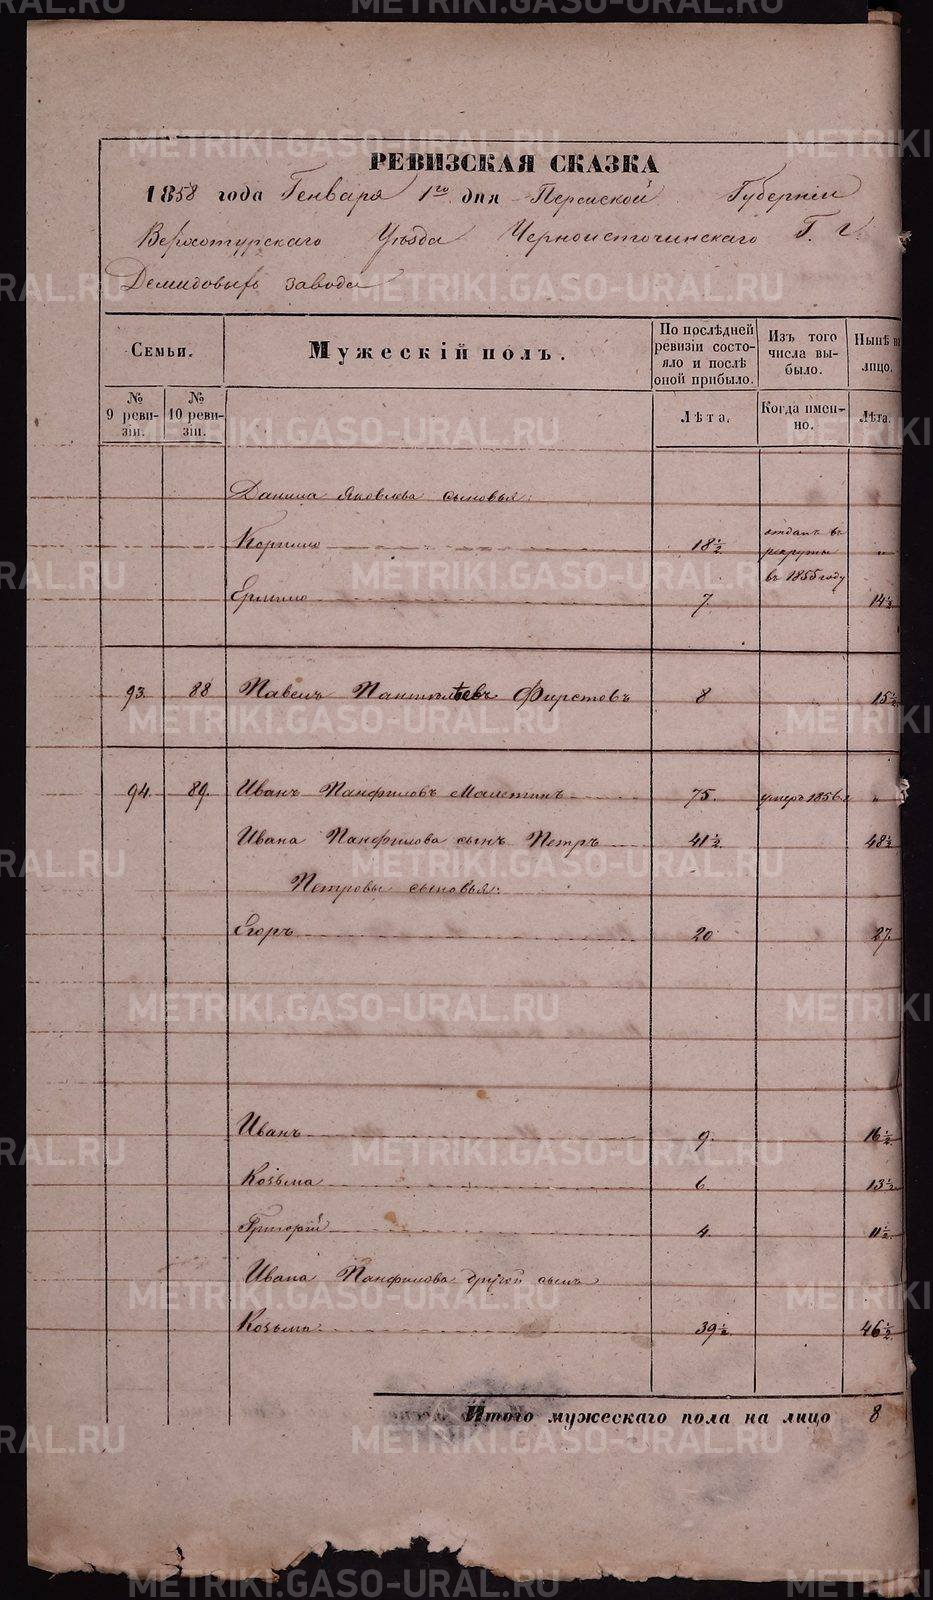 РЕВИЗСКАЯ СКАЗКА
1858 года Генваря 1го дня Пермской Губернiи
Верхотурскаго Уѣзда Черноисточинскаго Г. г.
Демидовыхъ завода
Семьи.
Мужескiй полъ.
По послѣдней ревизiи состояло и послѣ оной прибыло.
Изъ того числа выбыло.
Нынѣ на лицо.
№ 9 ревизiи.
№ 10 ревизiи.
Лѣта.
Когда именно.
Лѣта.
Данила Яковлева сыновья:
Корнило 18½ отданъ въ рекруты въ 1855 году „
Ермило 7. 14½
93. 88 Павелъ Пантилѣевъ Фирстовъ 8 15½
94. 89. Иванъ Панфиловъ Малетинъ 75. умеръ 1856 г „
Ивана Панфилова сынъ Петръ 41½ 48½
Петровы сыновья:
Егоръ 20 27.
Иванъ 9. 16½
Козьма 6. 13½
Григорiй 4. 11½
Ивана Панфилова другой сынъ
Козьма 39½ 46½
Итого мужескаго пола на лицо 8
METRIKI.GASO-URAL.RU